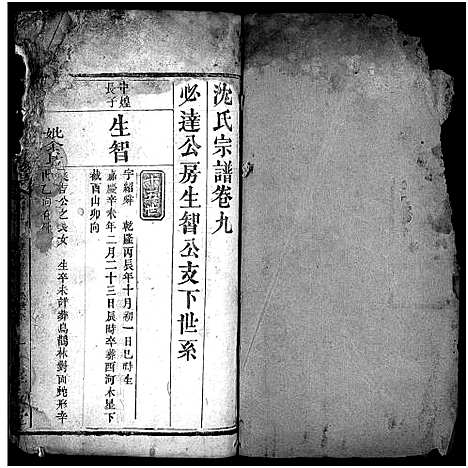 沈氏宗譜卷九
必達公房生智公支下世系
中煌
長子
生智
字紹舜 乾隆丙辰年十月初一日巳時生
嘉慶辛未年二月二十三日辰時卒葬酉河木星下
栽酉山卯向
妣余
公之長女 生卒未詳葬烏鵲林對面蛇形辛
乙向